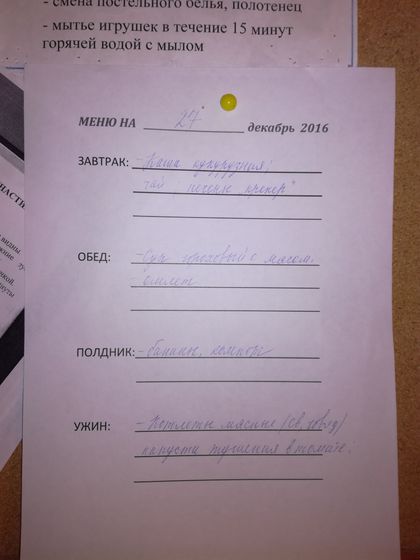 - смена постельного белья, полотенец
- мытье игрушек в течение 15 минут
горячей водой с мылом
МЕНЮ НА 27 декабрь 2016
ЗАВТРАК: - Каша кукурузная;
чай, печенье "крекер"
ОБЕД: - Суп гороховый с мясом.
омлет
ПОЛДНИК: - бананы, компот
УЖИН: - Котлеты мясные (св, говяд)
капуста тушеная в томате.